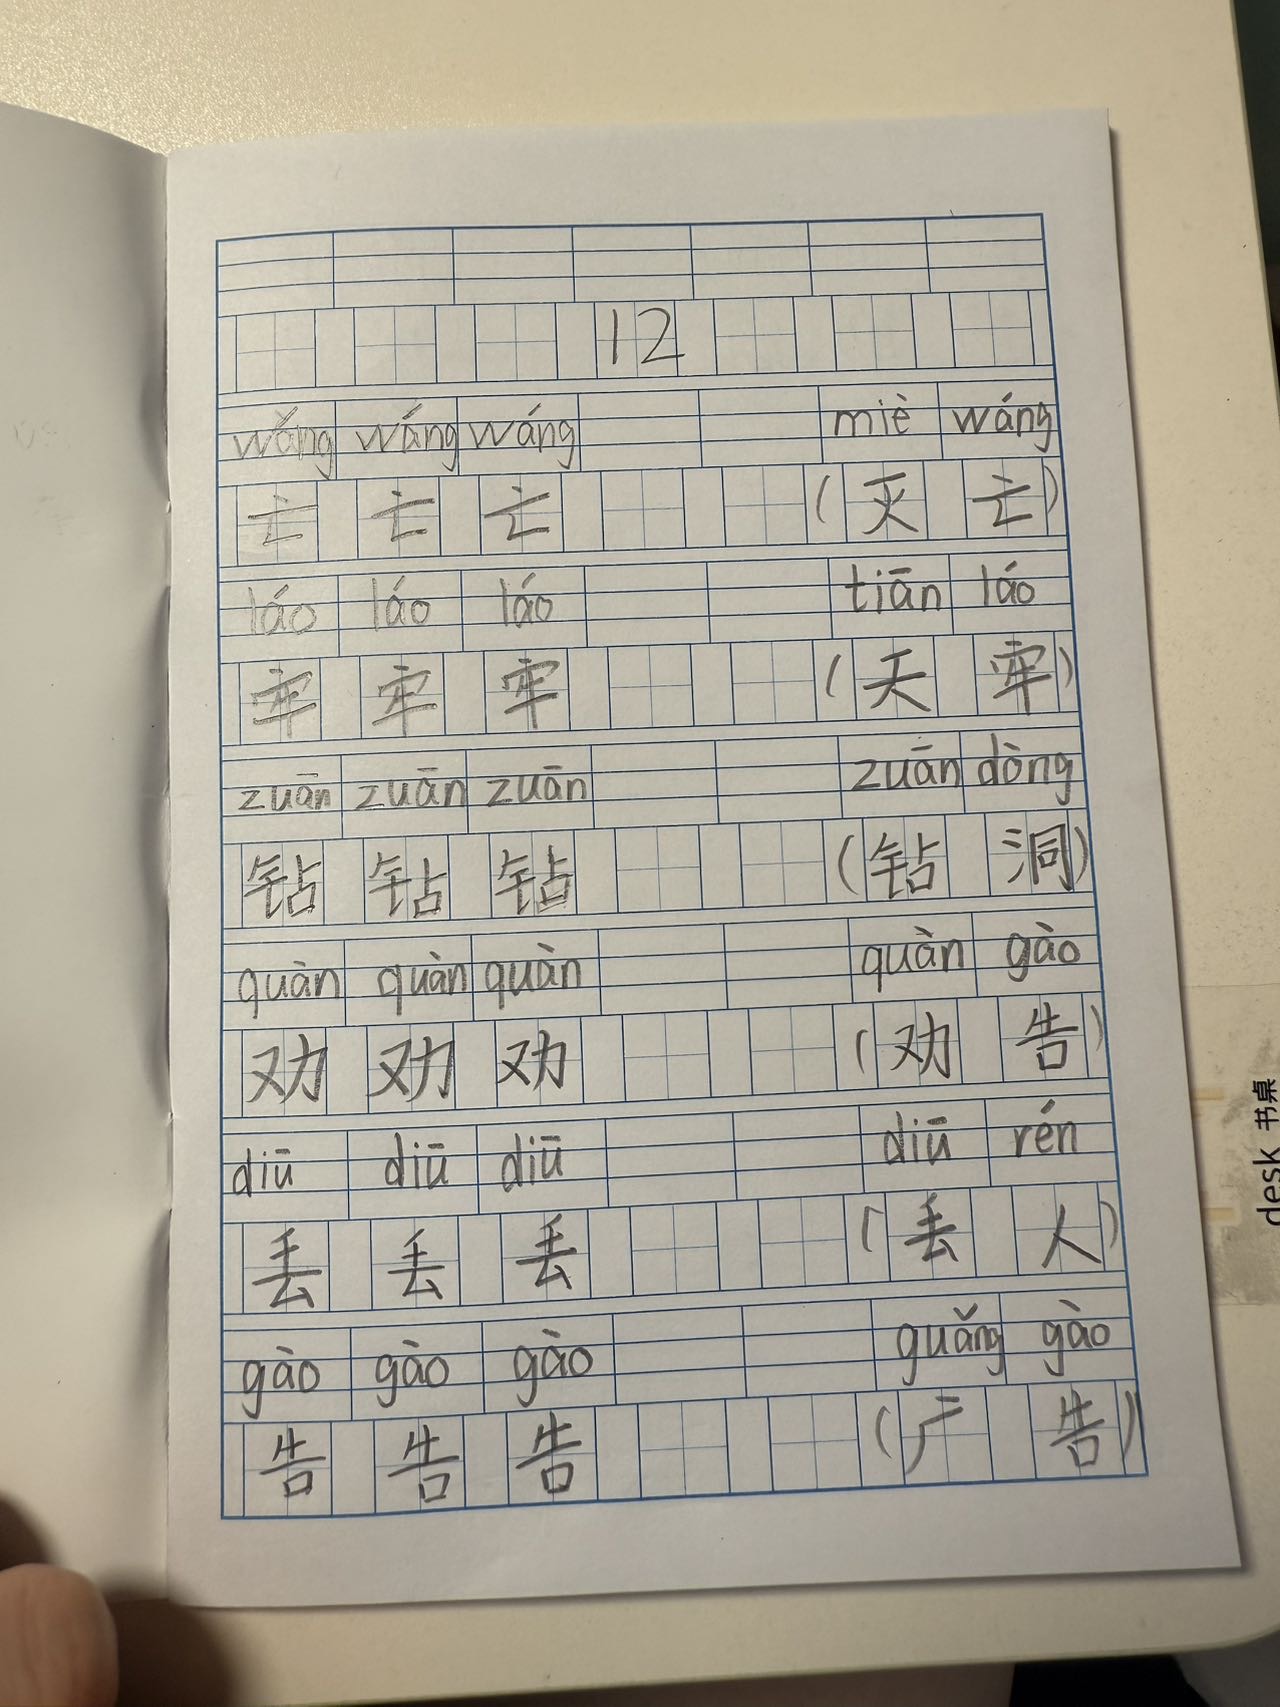 12
wáng wáng wáng miè wáng
亡 亡 亡 (灭 亡)
láo láo láo tiān láo
牢 牢 牢 (天 牢)
zuān zuān zuān zuān dòng
钻 钻 钻 (钻 洞)
quàn quàn quàn quàn gào
劝 劝 劝 (劝 告)
diū diū diū diū rén
丢 丢 丢 (丢 人)
gào gào gào guǎng gào
告 告 告 (广 告)
desk 书桌